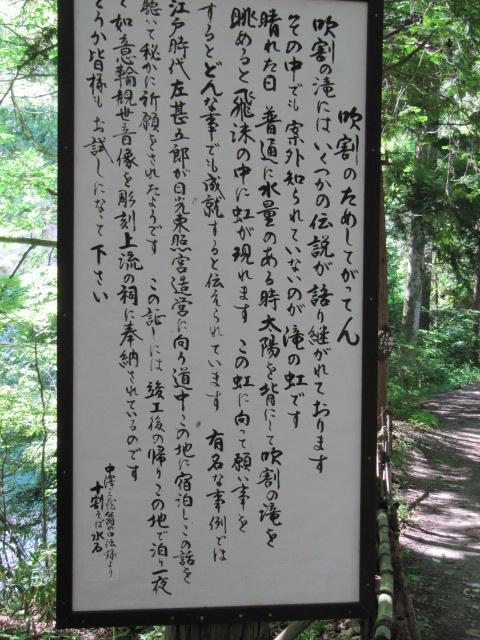 吹割のためしてがってん
吹割の滝にはいくつかの伝説が語り継がれております
その中でも案外知られていないのが滝の虹です
晴れた日 普通に水量のある時 太陽を背にして吹割の滝を
眺めると飛沫の中に虹が現れます この虹に向って願い事を
するとどんな事でも成就すると伝えられています 有名な事例では
江戸時代左甚五郎が日光東照宮造営に向う道中この地に宿泊しこの話を
聴いて秘かに祈願をされたようです この証しには 竣工後の帰りこの地で泊り一夜
で如意輪観世音像を彫刻上流の祠に奉納されているのです
どうか皆様も お試しになって下さい
十割そば水石